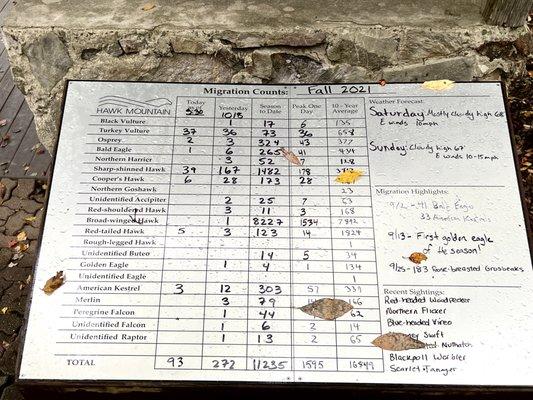 Migration Counts: Fall 2021
HAWK MOUNTAIN
Today Yesterday Season to Date Peak One Day 10 - Year Average
10/8
Black Vulture 1 17 6 135
Turkey Vulture 37 36 73 36 658
Osprey 2 3 324 43
Bald Eagle 1 6 265 41
Northern Harrier 3 52
Sharp-shinned Hawk 39 167 1482 178
Cooper's Hawk 6 28 173 28
Northern Goshawk 23
Unidentified Accipiter 2 25 7 63
Red-shouldered Hawk 3 11 3 168
Broad-winged Hawk 1 8227 1534
Red-tailed Hawk 5 3 123 14 1824
Rough-legged Hawk
Unidentified Buteo 14 5 34
Golden Eagle 1 4 1 134
Unidentified Eagle 1
American Kestrel 3 12 303 57 339
Merlin 3 79 166
Peregrine Falcon 1 44 62
Unidentified Falcon 1 6 2 14
Unidentified Raptor 1 13 2 65
TOTAL 93 272 11235 1595 16849
Weather Forecast:
Saturday: Mostly cloudy high 68
E winds 10mph
Sunday: Cloudy high 67
E winds 10-15mph
Migration Highlights:
41 Bald Eagle
33 American Kestrels
9/13 - First golden eagle
of the season!
9/25 - 183 Rose-breasted Grosbeaks
Recent Sightings:
Red-headed Woodpecker
Northern Flicker
Blue-headed Vireo
Swift
Nuthatch
Blackpoll Warbler
Scarlet Tanager